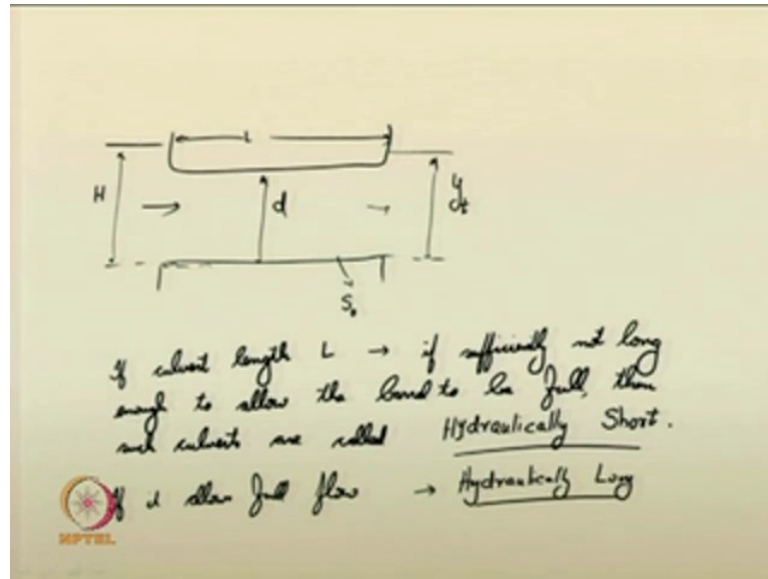 L
H
d
yt
S₀
If culvert length L → if sufficiently not long
enough to allow the barrel to be full, then
such culverts are called Hydraulically Short.
If it allows full flow → Hydraulically Long
NPTEL